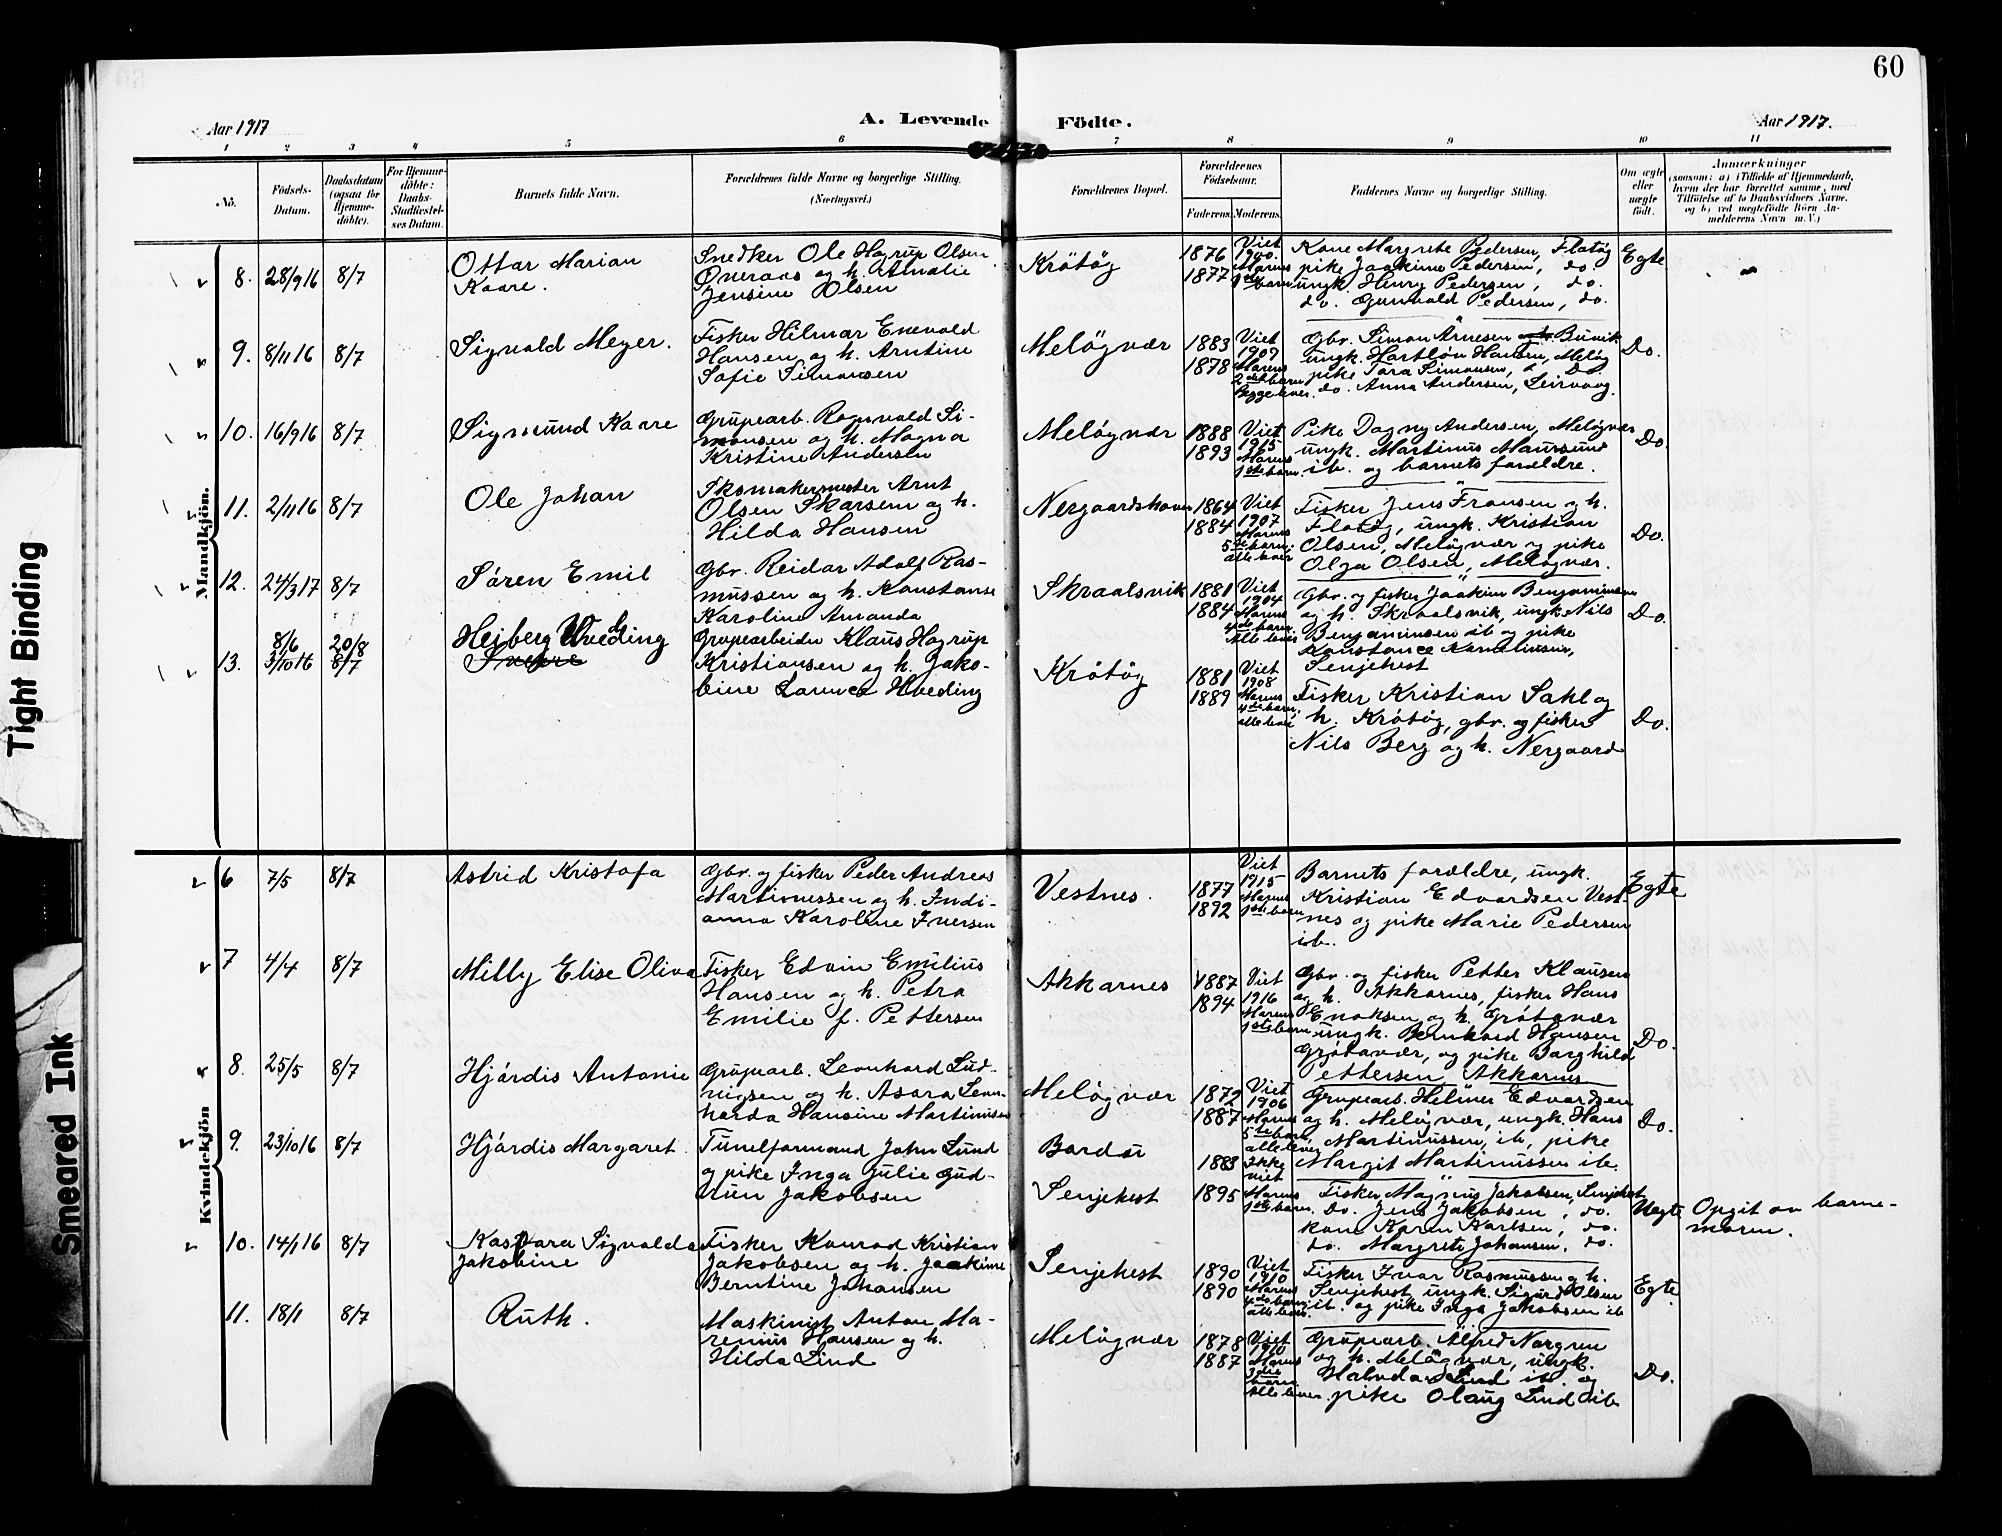 60
Aar 1917
A. Levende Födte.
Aar 1917.
1 2 3 4 5 6 7 8 9 10 11
No.
Födsels-Datum.
Daabsdatum (ogsaa for Hjemmedöbte).
For Hjemmedöbte: Daabs-Stadfæstelses Datum.
Barnets fulde Navn.
Forældrenes fulde Navne og borgerlige Stilling. (Næringsvei.)
Forældrenes Bopæl.
Forældrenes Födselsaar.
Faderens. Moderens.
Faddernes Navne og borgerlige Stilling.
Om ægte eller uægte födt.
Anmærkninger
(saasom: a) i Tilfælde af Hjemmedaab, hvem der har forrettet samme, med Tilföielse af to Daabsvidners Navne, og b) ved uægtefödte Börn Anmelderens Navn m. V.)
Mandkjön.
8. 28/9 16 8/7
Ottar Marian
Kaare.
Snedker Ole Hagrup Olsen
Overaas og h. Amalie
Jensine Olsen
Krötöy
1876
1877
Viet
1900.
Mornes
barn
Kone Margrete Pedersen, Flatöy
pike Jaakime Pedersen, do.
ungk. Henry Pedersen, do.
do. Gunvald Pedersen, do.
Egte
9. 8/11 16 8/7
Sigvald Meyer.
Fisker Hilmar Enevold
Hansen og h. Arntine
Sofie Simonsen
Meløyvær
1883
1878
Viet
1907
Morens
2det barn
Begge lever.
Gbr. Simon Arnesen Buvik
ungk. Hartløv Hansen, Meløy
pike Tora Simonsen, Do
do. Anna Andersen, Leirvaag.
Do.
10. 16/9 16 8/7
Sigmund Kaare
Grupearb. Ragnvald Si-
monsen og h. Magna
Kristine Andersen
Meløyvær
1888
1893
Viet
1915
Morens
1ste barn
Pike Dagny Andersen, Meløyvær
ungk. Martinus Maursund
ib. og barnets forældre.
Do.
11. 2/11 16 8/7
Ole Johan
Skomakermester Arnt
Olsen Skarsem og h.
Hilda Hansen
Nergaardshavn
1864
1884
Viet
1907
Morens
5te barn.
alle lever
Fisker Jens Fransen og h.
Flatöy, ungk. Kristian
Olsen, Meløyvær og pike
Olga Olsen, Meløyvær.
Do.
12. 24/3 17 8/7
Sören Emil
Gbr. Reidar Adolf Ras-
mussen og h. Konstanse
Karoline Amanda
Skraalsvik
1881
1884
Viet
1904
Morens
4de barn.
Alle lever
Gbr. og fisker Joakim Benjaminsen
og h. Skraalsvik, ungk Nils
Benjaminsen ib og pike
Konstance Kornelinsen,
Senjehest
Do.
13. 8/6 3/10 16 20/8 8/7
Heiberg Hveding
Grupearbeider Klaus Hagrup
Kristiansen og h. Jako-
bine Laurica Hveding
Krötöy
1881
1889
Viet
1908
Morens
4de barn.
alle lever
Fisker Kristian Dahl og
h. Krötöy, gbr. og fisker
Nils Berg og h. Nergaard
Do.
Kvindekjön
6 7/5 8/7
Astrid Kristofa
Gbr. og fisker Peder Andreas
Martinussen og h. Indi-
anna Karoline Iversen
Vestnes.
1877
1892
Viet
1915
Morens
1ste barn
Barnets forældre, ungk.
Kristian Edvardsen Vest-
nes og pike Marie Pedersen
ib.
Egte
7 4/4 8/7
Milly Elise Oliva
Fisker Edvin Emilius
Hansen og h. Petra
Emilie f. Pettersen
Akkarnes
1887
1894
Viet
1916
Morens
1ste barn
Gbr. og fisker Petter Klausen
og h. Akkarnes, fisker Hans
Enoksen og h. Grötavær
ungk. Bernhard Hansen
Grötavær, og pike Borghild
Pettersen, Akkarnes
Do.
8. 25/5 8/7
Hjördis Antonie
Grupearb. Leonhard Lud-
vigsen og h. Asora Leon-
harda Hansine Martinussen
Meløyvær
1872
1887
Viet
1906
Morens
5te barn,
alle lever
Grupearb. Helmer Edvardsen
og h. Meløyvær, ungk. Hans
Martinussen, ib, pike
Margit Martinussen ib.
Do.
9. 23/10 16 8/7
Hjördis Margaret.
Tunelformand John Lund
og pike Inga Julie Gud-
run Jakobsen
Bardu
Senjehest
1883
1895
Ikke
viet
Morens
1ste barn.
Fisker Magnus Jakobsen, Senjehest
Do. Jens Jakobsen, do.
kone Karen Karlsen, do.
do. Margrete Johansen. do.
Uegte
Opgit av barne-
moren.
10. 14/1 16 8/7
Kaspara Sigvalda
Jakobine
Fisker Konrad Kristian
Jakobsen og h. Joakime
Berntine Johansen
Senjehest
1890
1890
Viet
1910
Morens
4de barn
alle lever.
Fisker Ivar Rasmussen og h.
Senjehest, ungk. Sigurd Olsen
ib. og pike Inga Jakobsen ib
Egte.
11. 18/1 8/7
Ruth.
Maskinist Anton Ma-
renius Hansen og h.
Hilda Lind
Meløyvær
1878
1887
Viet
1910
Morens
3die
barn
Alle lever.
Grupearb. Alfred Norgren
og h. Meløyvær, ungk.
Halvdan Lind ib. og
pike Olaug Lind ib
Do.
Tight Binding
Smeared Ink